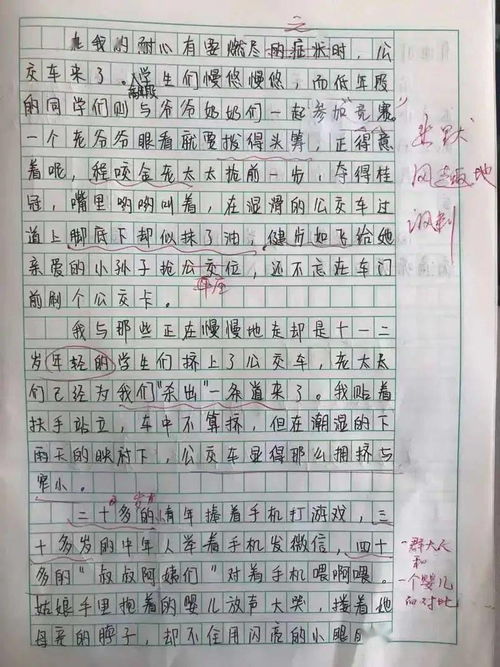 在我的耐心有要燃尽的症状时，公
交车来了。学生们慢悠慢悠，而低年段
的同学们则与爷爷奶奶们一起"参加"竞赛。
一个老爷爷眼看就要拔得头筹，正得意
着呢，程咬金老太太抢前一步，夺得桂
冠，嘴里哟哟叫着，在湿滑的公交车过
道上脚底下却似抹了油，健步如飞给她
亲爱的小孙子抢公交位，还不忘在车门
车座
前刷个公交卡。
我与那些正在慢慢地走却是十一二
岁年轻的学生们挤上了公交车，老太太
们已经为我们"杀出"一条道来了。我贴着
扶手站立，车中不算挤，但在潮湿的下
雨天的映衬下，公交车显得那么拥挤与
窄小。
二十多的青年捧着手机打游戏，三
十多岁的中年人举着手机发微信，四十
多的"叔叔阿姨们"对着手机喂啊喂。
姑娘手里抱着的婴儿放声大哭，搂着她
母亲的脖子，却不住用闪亮的小眼
幽默
风趣地
讽刺
一群大人
和
一个婴儿
的对比